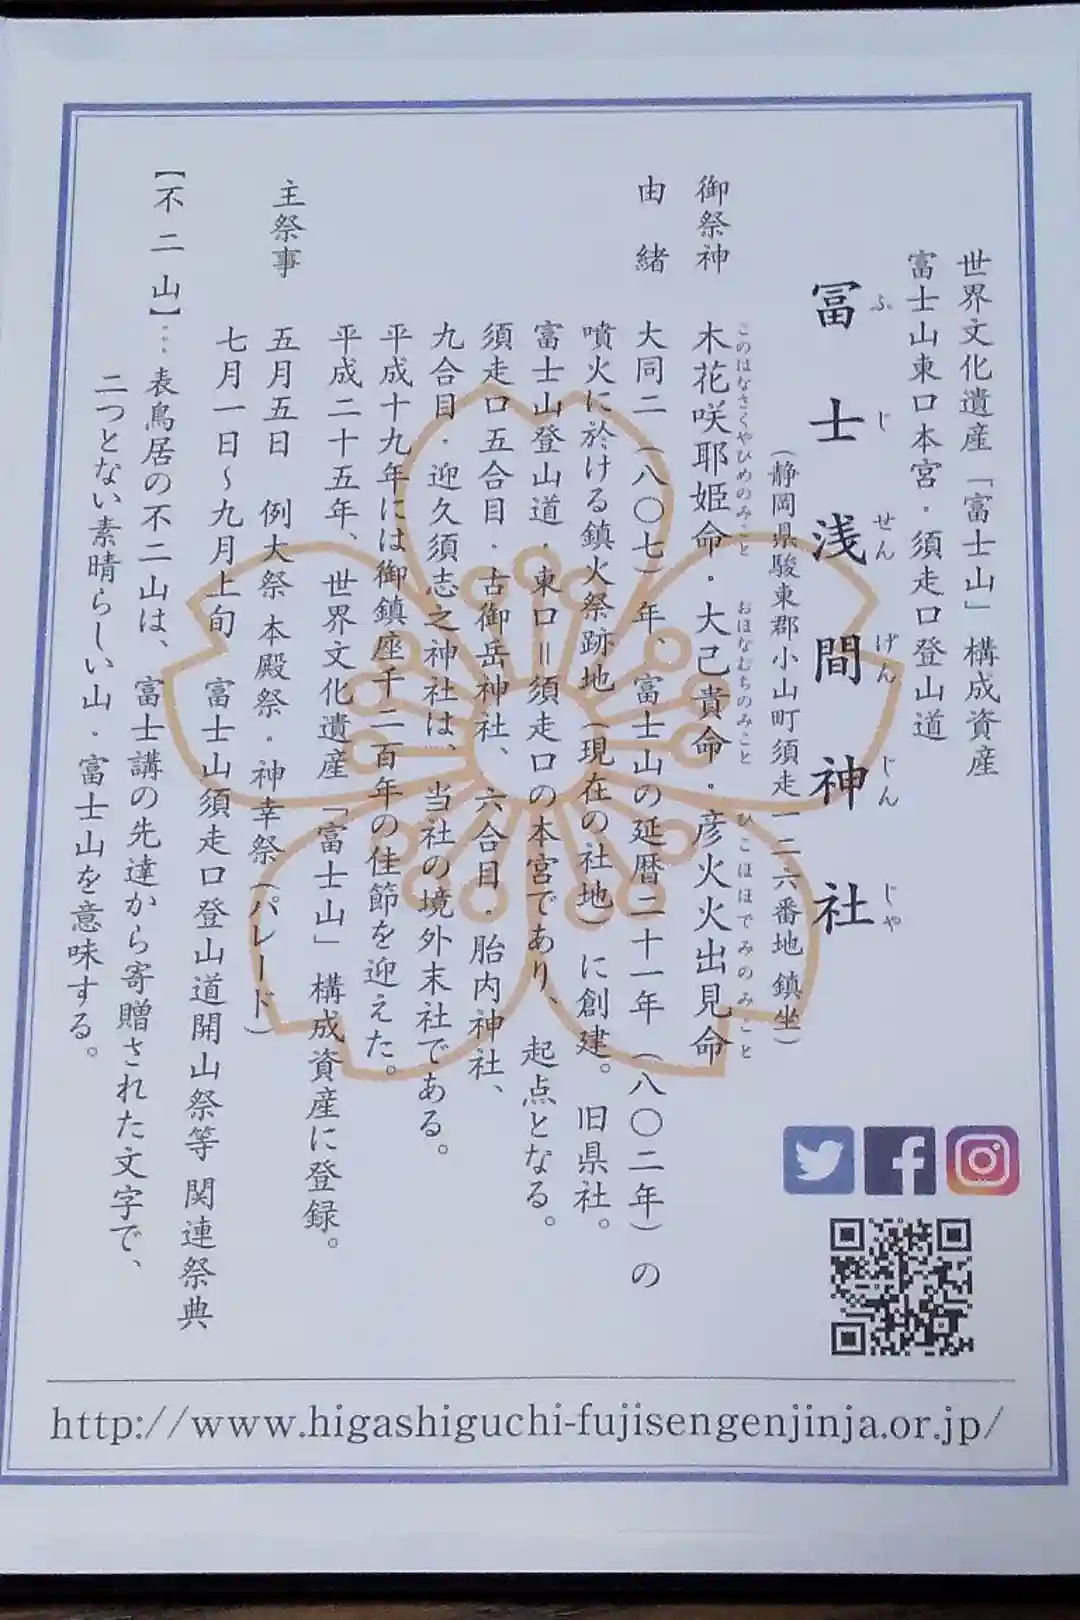 世界文化遺産「富士山」構成資産
富士山東口本宮・須走口登山道
冨士浅間神社
ふじせんげんじんじゃ
(静岡県駿東郡小山町須走一二六番地 鎮坐)
御祭神 木花咲耶姫命・大己貴命・彦火火出見命
このはなさくやひめのみこと おほなむちのみこと ひこほほでみのみこと
由緒 大同二(八〇七)年、富士山の延暦二十一年(八〇二年)の
噴火に於ける鎮火祭跡地(現在の社地)に創建。旧県社。
富士山登山道・東口=須走口の本宮であり、起点となる。
須走口五合目・古御岳神社、六合目・胎内神社、
九合目・迎久須志之神社は、当社の境外末社である。
平成十九年には御鎮座千二百年の佳節を迎えた。
平成二十五年、世界文化遺産「富士山」構成資産に登録。
主祭事 五月五日 例大祭 本殿祭・神幸祭(パレード)
七月一日~九月上旬 富士山須走口登山道開山祭等 関連祭典
【不二山】…表鳥居の不二山は、富士講の先達から寄贈された文字で、
二つとない素晴らしい山・富士山を意味する。
http://www.higashiguchi-fujisengenjinja.or.jp/